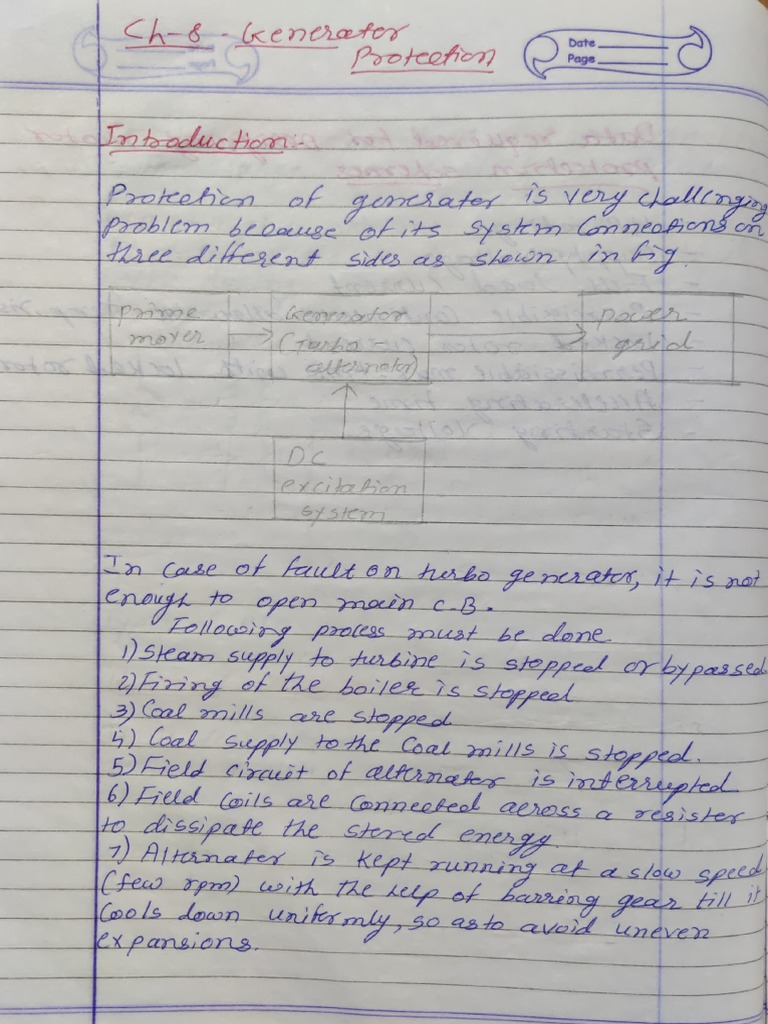 Ch-8 - Generator
Protection
Date
Page
Introduction:-
Protection of generator is very challenging
problem because of its system connections on
three different sides as shown in fig.
Prime
mover
Generator
(Turbo -
alternator)
power
grid
DC
excitation
system
In case of fault on turbo generator, it is not
enough to open main C.B.
Following process must be done
1) Steam supply to turbine is stopped or bypassed
2) Firing of the boiler is stopped
3) Coal mills are stopped
4) Coal supply to the coal mills is stopped.
5) Field circuit of alternator is interrupted
6) Field coils are connected across a resister
to dissipate the stored energy.
7) Alternater is kept running at a slow speed
(few rpm) with the help of barring gear till it
cools down uniformly, so as to avoid uneven
expansions.